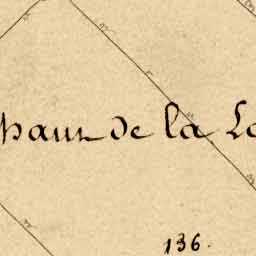 haut de la La
136.